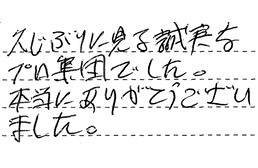 久じぶりに見る誠実な
プロ集団でした。
本当にありがとうござい
ました。